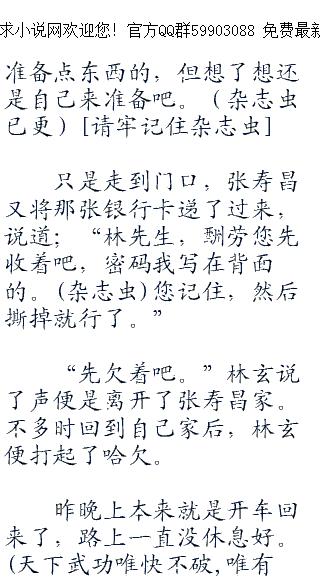 求小说网欢迎您！官方QQ群59903088 免费最新
准备点东西的，但想了想还
是自己来准备吧。（杂志虫
已更）[请牢记住杂志虫]
只是走到门口，张寿昌
又将那张银行卡递了过来，
说道；“林先生，酬劳您先
收着吧，密码我写在背面
的。(杂志虫)您记住，然后
撕掉就行了。”
“先欠着吧。”林玄说
了声便是离开了张寿昌家。
不多时回到自己家后，林玄
便打起了哈欠。
昨晚上本来就是开车回
来了，路上一直没休息好。
(天下武功唯快不破,唯有